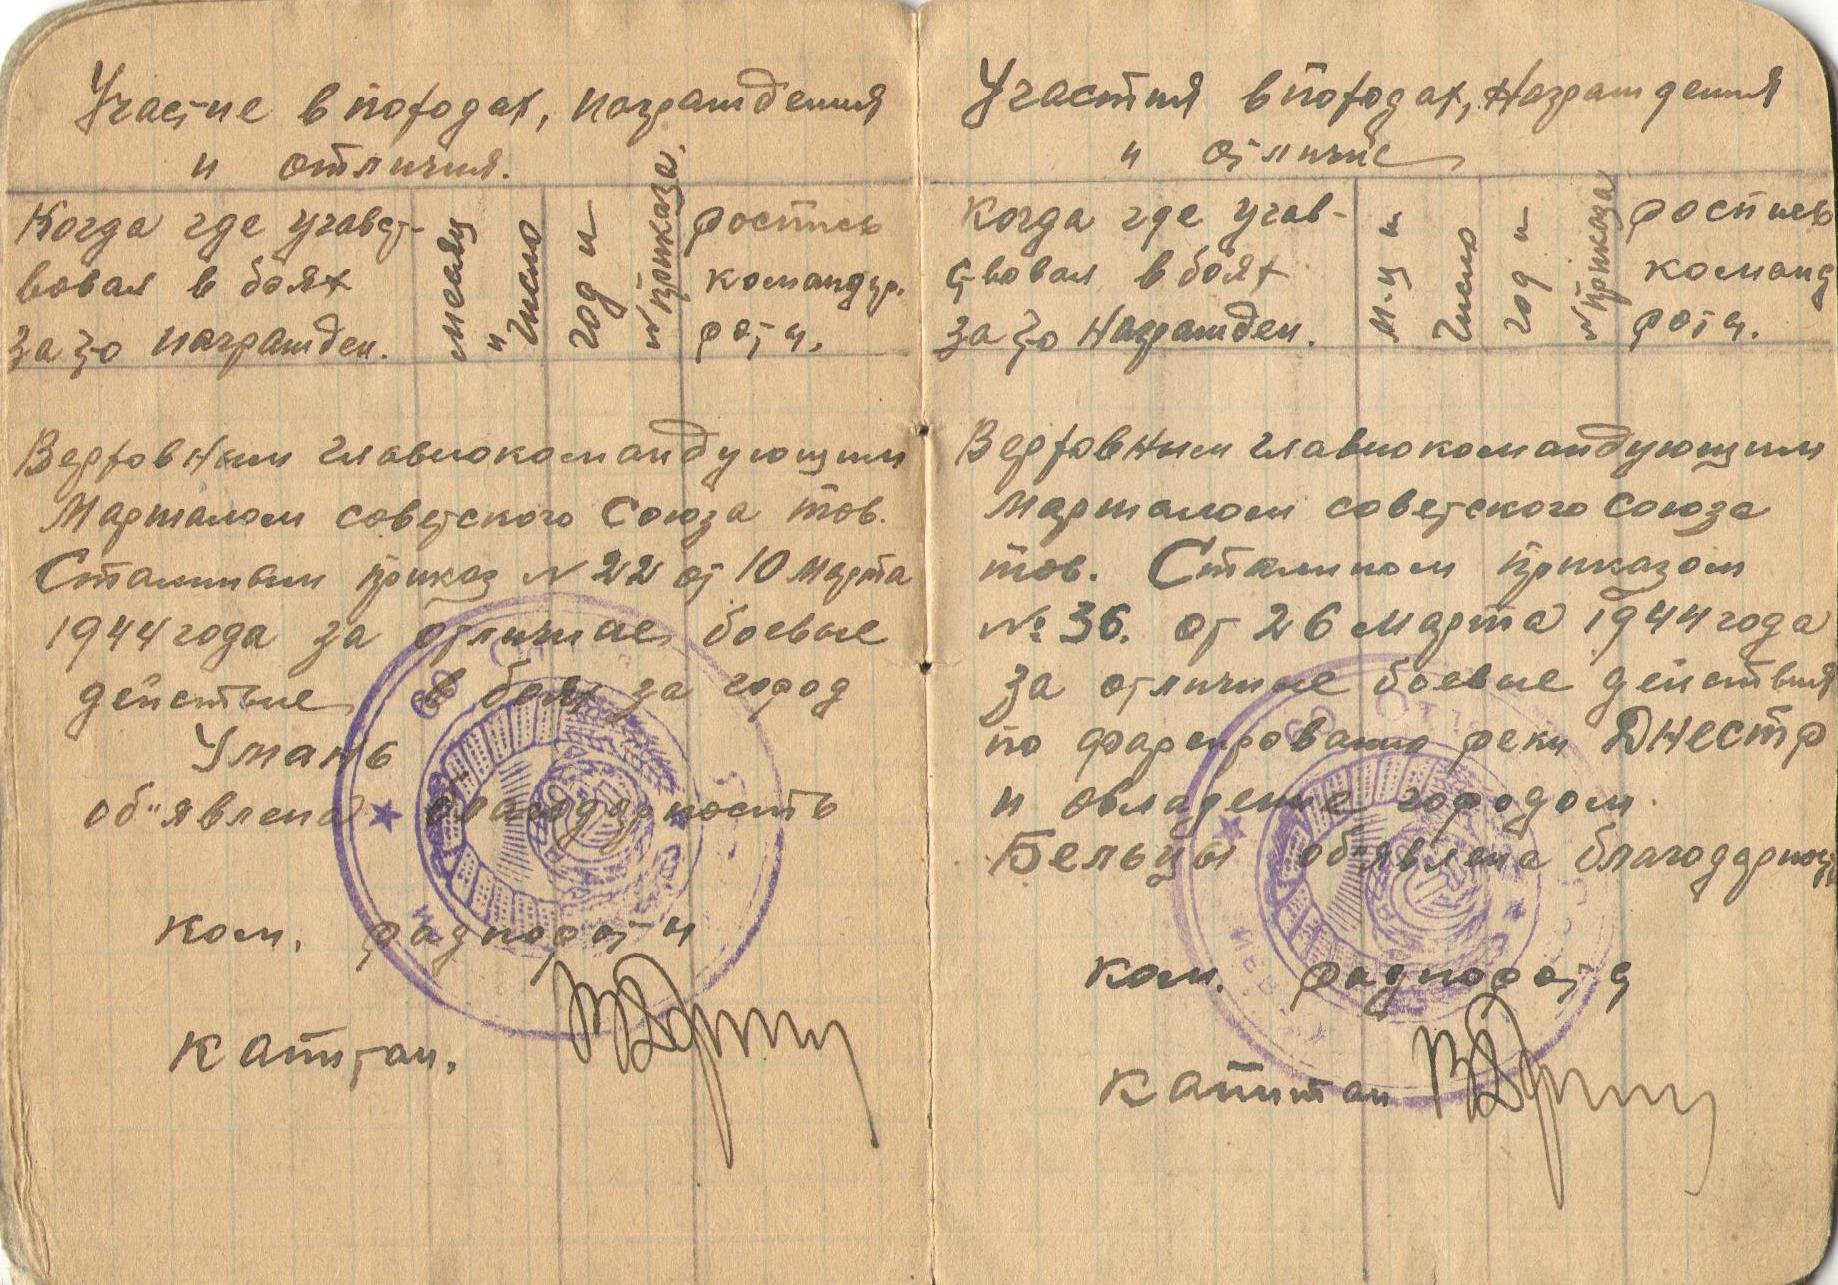 Участие в походах, награждения
и отличия.
Когда где учавст-
вовал в боях
за что награжден.
месяц
и
число
год и
№ приказа.
роспись
командир.
роты.
Верховным главнокомандующим
Маршалом советского Союза тов.
Сталиным приказ № 22 от 10 марта
1944 года за отличные боевые
действие в боях за город
Умань
об"явлена благодарность
ком. радиороты
капитан.
Участия в походах, Награждения
и отличие
Когда где учав-
ствовал в боях
за что Награжден.
м-ц и
число
год и
№ приказа
роспись
команд
роты.
Верховным главнокомандующим
Маршалом советского союза
тов. Сталином приказом
№ 36. от 26 марта 1944 года
за отличные боевые действия
по фарсированию реки Днестр
и овладение городом
Бельцы об"явлена благодарность
ком. радиороты
капитан